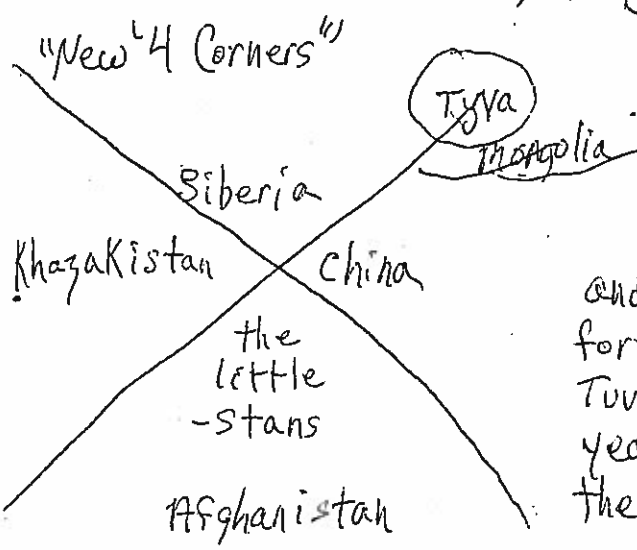 "New '4 Corners"
Tyva
Mongolia
Siberia
Khazakistan
China
the
little
-stans
Afghanistan
and
for
Tuv
yea
the